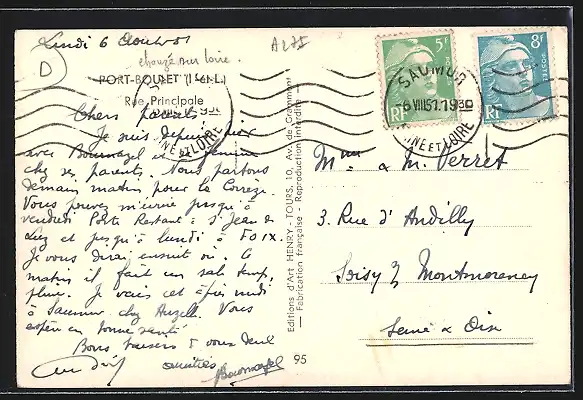 Lundi 6 Août 51
D
A275
change sur loire.
PORT-BOULET (I.-&-L.)
Rue Principale
Chers parents
Je suis depuis hier
avec Bournazel et
chez ses parents. Nous partons
demain matin pour la Corrèze.
Vous pouvez m'écrire jusqu'à
vendredi Poste Restante à St Jean de
Luz et jusqu'à lundi à FOIX.
Je vous dirai ensuite où. Ce
matin il fait un sale temps,
pluie. Je vais cet après midi
à Saumur chez Auzell. Vous
espère en bonne santé
Bons baisers à vous deux
amitiés
Bournazel
Editions d'Art HENRY - TOURS, 10, Av. de Grammont
— Fabrication française - Reproduction interdite —
95
5F
RF
POSTES
8F
RF
POSTES
SAUMUR
-6 VIII 51. 1930
MAINE ET LOIRE
Mme & M. Verret
3. Rue d'Andilly
Soisy s/ Montmorency
Seine & Oise